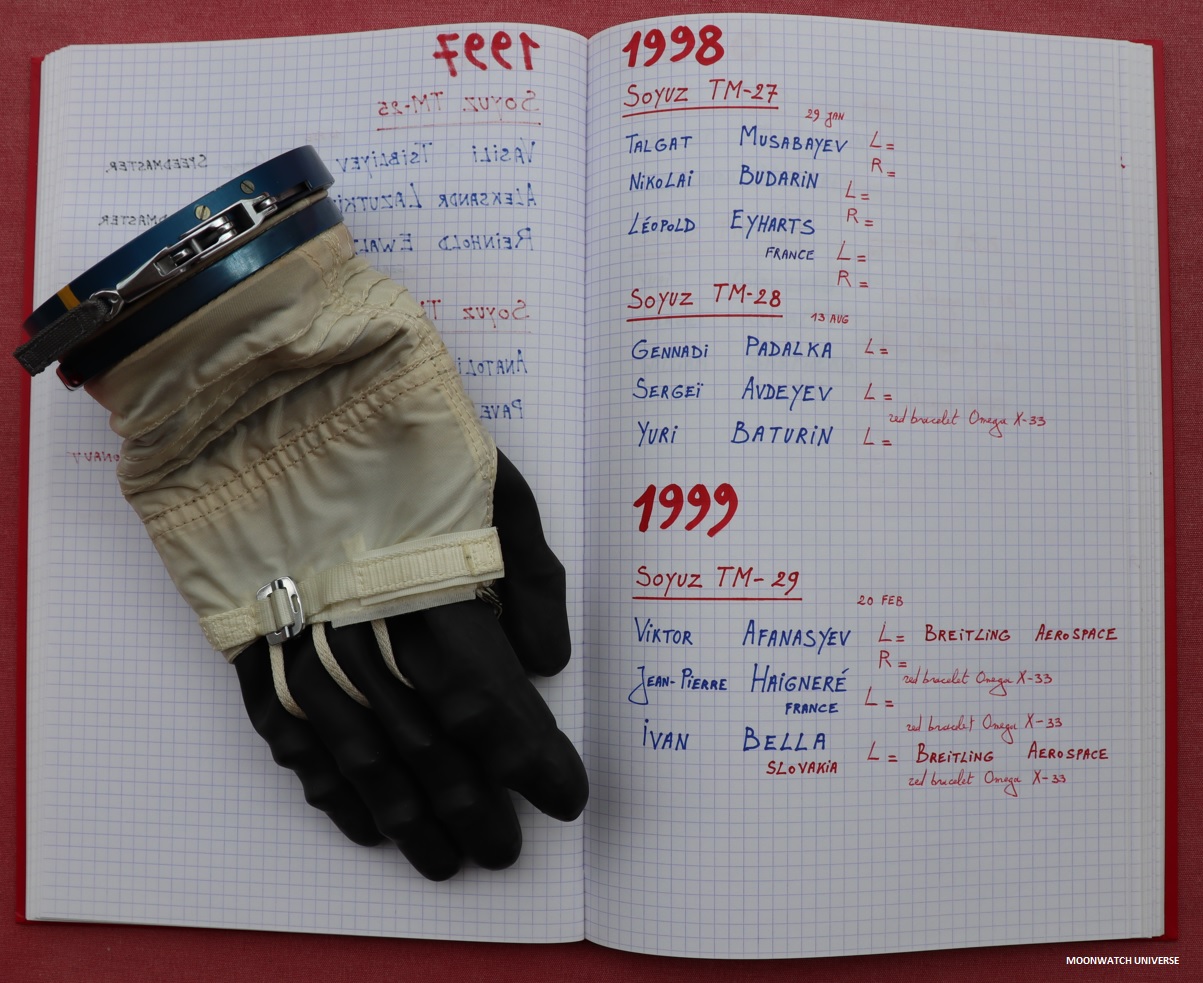 1997
SOYUZ TM-25
VASILI TSIBLIYEV SPEEDMASTER.
ALEKSANDR
REINHOLD
SOYUZ
ANATOLI
1998
SOYUZ TM-27
29 JAN
TALGAT MUSABAYEV L=
R=
NiKOLAi BUDARiN L=
R=
LÉOPOLD EYHARTS
FRANCE L=
R=
SOYUZ TM-28
13 AUG
GENNADi PADALKA L=
SERGEÏ AVDEYEV L=
red bracelet Omega X-33
YURi BATURiN L=
1999
SOYUZ TM-29
20 FEB
ViKTOR AFANASYEV L= BREITLING AEROSPACE
R=
red bracelet Omega X-33
JEAN-PiERRE HAIGNERÉ L=
FRANCE
red bracelet Omega X-33
iVAN BELLA L= BREITLING AEROSPACE
SLOVAKiA
red bracelet Omega X-33
MOONWATCH UNIVERSE